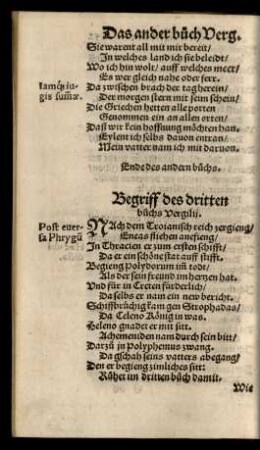 Das ander bůch Verg.
Sie warent all mit mir bereit/
In welches land ich sie beleidt/
Wo ich hin wolt/ auff welches meer/
Es wer gleich nahe oder ferr.
Iamq́ iu-
gis summæ.
Da zwischen brach der tag herein/
Der morgen stern mit sein schein/
Die Griechen hetten alle porten
Genommen ein an allen orten/
Dasst wir kein hoffnung möchten han.
Eylent ich selbs dauon entran/
Mein vatter nam ich mit daruon.
Ende des andern bůchs.
Begriff des dritten
bůchs Vergilij.
Post euer-
sa Phrygũ
NAch dem Troianisch reich zergieng/
Eneas fliehen anefieng/
In Thracien er zum ersten schifft/
Da er ein schöne stat auff stifft.
Begieng Polydorum im̃ todt/
Als der sein freund im hertzen hat.
Vnd für in Creten fürderlich/
Da selbs er nam ein new bericht.
Schiffbrüchig kam gen Strophadas/
Da Celeno König in was.
Heleno gnadet er mit sitt.
Achemeniden nam durch sein bitt/
Darzů jn Polyphemus zwang.
Da gschah seins vatters abegang/
Den er begieng zimliches sitt:
Růhet im dritten bůch damit.
Wie